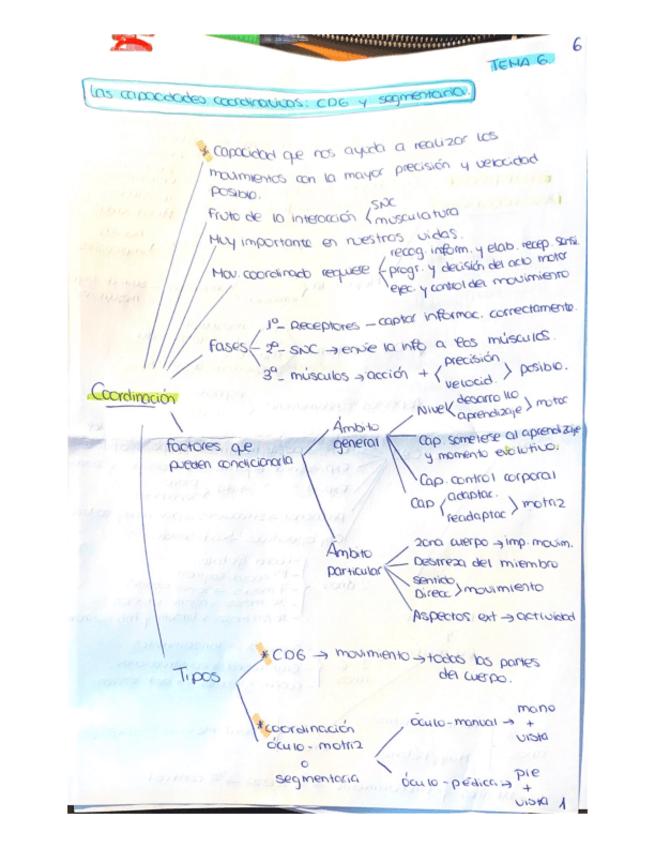 6
TEMA 6.
Las capacidades coordinativas: CDG y segmentaria.
* Capacidad que nos ayuda a realizar los
movimientos con la mayor precisión y velocidad
posible.
Fruto de la interacción < SNC
musculatura
Muy importante en nuestras vidas.
Mov. coordinado requiere
recog. inform. y elab. recep. sensi.
progr. y decisión del acto motor
ejec. y control del movimiento
Fases
1º- Receptores - captar informac. correctamente.
2º- SNC → envíe la info a los músculos.
3º- músculos → acción + < precisión
velocid. > posible.
Coordinación
Factores que
pueden condicionarla
Ámbito
general
Nivel < desarrollo
aprendizaje > motor
Cap. someterse al aprendizaje
y momento evolutivo.
Cap. control corporal
Cap < adaptac.
readaptac > motriz
Ámbito
particular
Zona cuerpo → imp. movim.
Destreza del miembro
Sentido
Direcc > movimiento
Aspectos ext → actividad
Tipos
* CDG → movimiento → todas las partes
del cuerpo.
* coordinación
óculo-motriz
o
segmentaria
óculo-manual → mano
+
vista
óculo-pédica → pie
+
vista
1